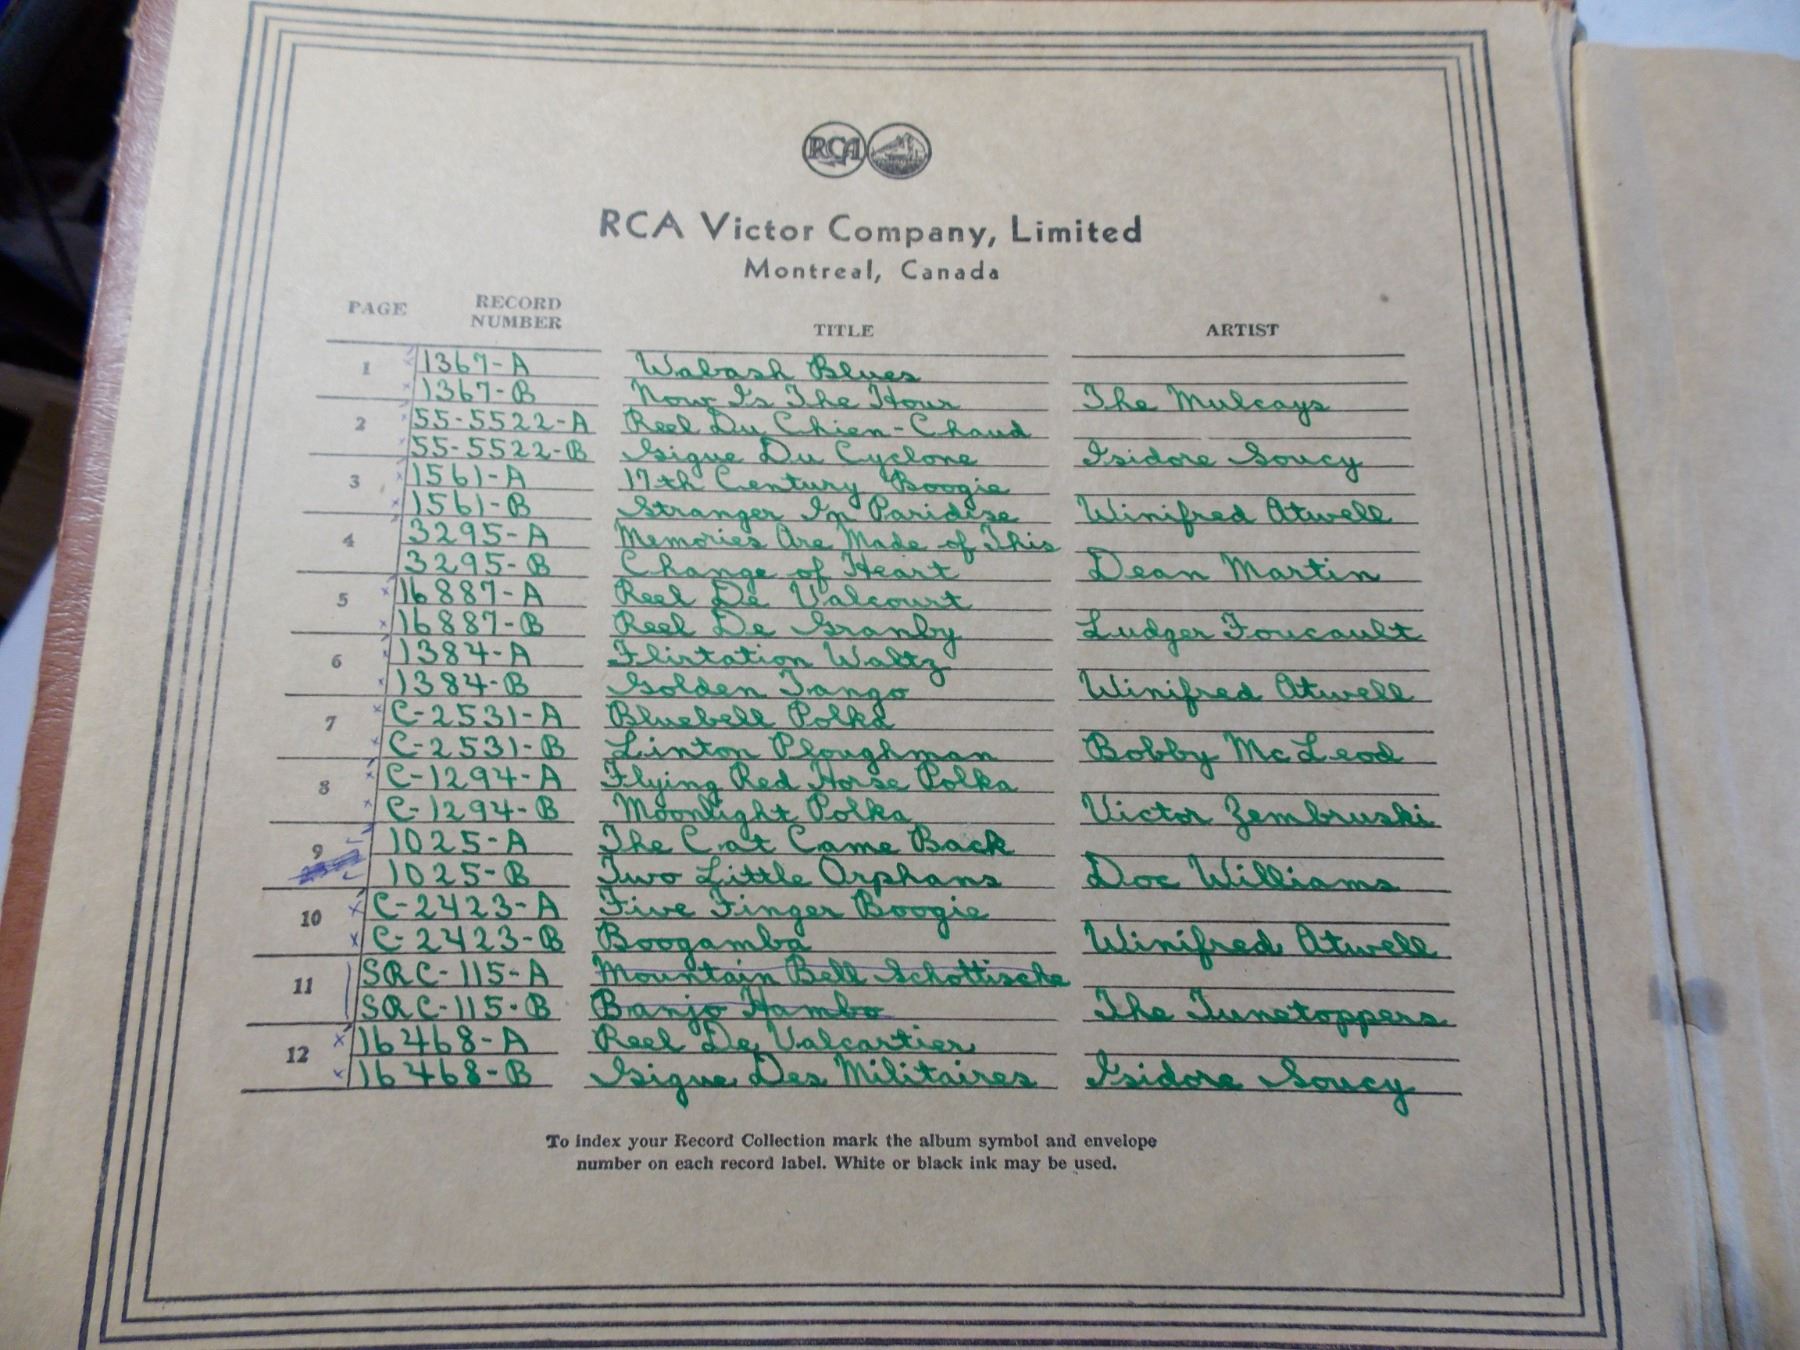 RCA
RCA Victor Company, Limited
Montreal, Canada
PAGE RECORD NUMBER TITLE ARTIST
1 1367-A Wabash Blues
1367-B Now Is The Hour The Mulcays
2 55-5522-A Reel Du Chien-Chaud
55-5522-B Gigue Du Cyclone Isidore Soucy
3 1561-A 17th Century Boogie
1561-B Stranger In Paridise Winifred Atwell
4 3295-A Memories Are Made of This
3295-B Change of Heart Dean Martin
5 16887-A Reel De Valcourt
16887-B Reel De Granby Ludger Foucault
6 1384-A Flirtation Waltz
1384-B Golden Tango Winifred Atwell
7 C-2531-A Bluebell Polka
C-2531-B Linton Ploughman Bobby McLeod
8 C-1294-A Flying Red Horse Polka
C-1294-B Moonlight Polka Victor Zembruski
9 1025-A The Cat Came Back
1025-B Two Little Orphans Doc Williams
10 C-2423-A Five Finger Boogie
C-2423-B Boogamba Winifred Atwell
11 SRC-115-A Mountain Bell Schottische
SRC-115-B Banjo Hambo The Tunetoppers
12 16468-A Reel De Valcartier
16468-B Gigue Des Militaires Isidore Soucy
To index your Record Collection mark the album symbol and envelope
number on each record label. White or black ink may be used.